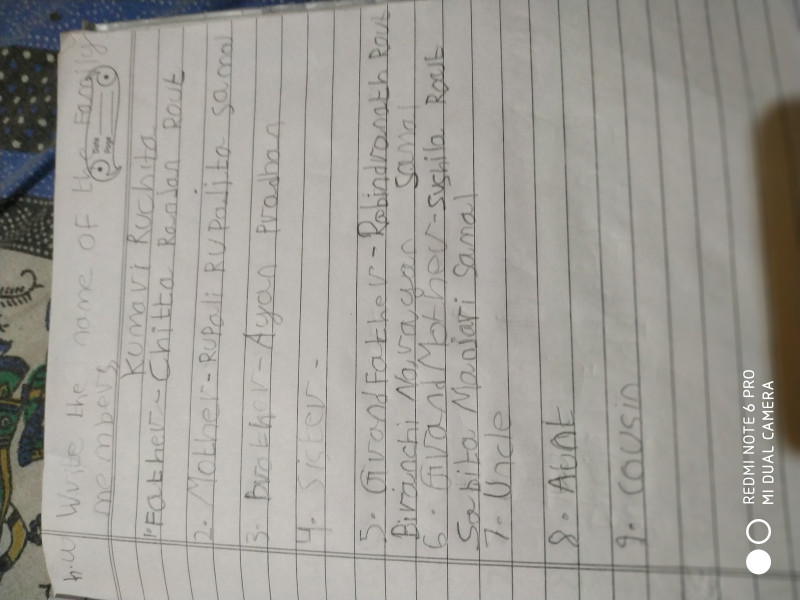 h.w Write the name of the Family
Date
Page
members,
Kumari Ruchita
1. Father - Chitta Ranjan Rout
2. Mother - RuPali RuPalita Samal
3. Brother - Ayan Pradhan
4. Sister -
5. GrandFather - Rabindranath Rout
Biranchi Narayan Samal
6. GrandMother - Sushila Rout
Sabita Manjari Samal
7. Uncle
8. Aunt
9. Cousin
REDMI NOTE 6 PRO
MI DUAL CAMERA